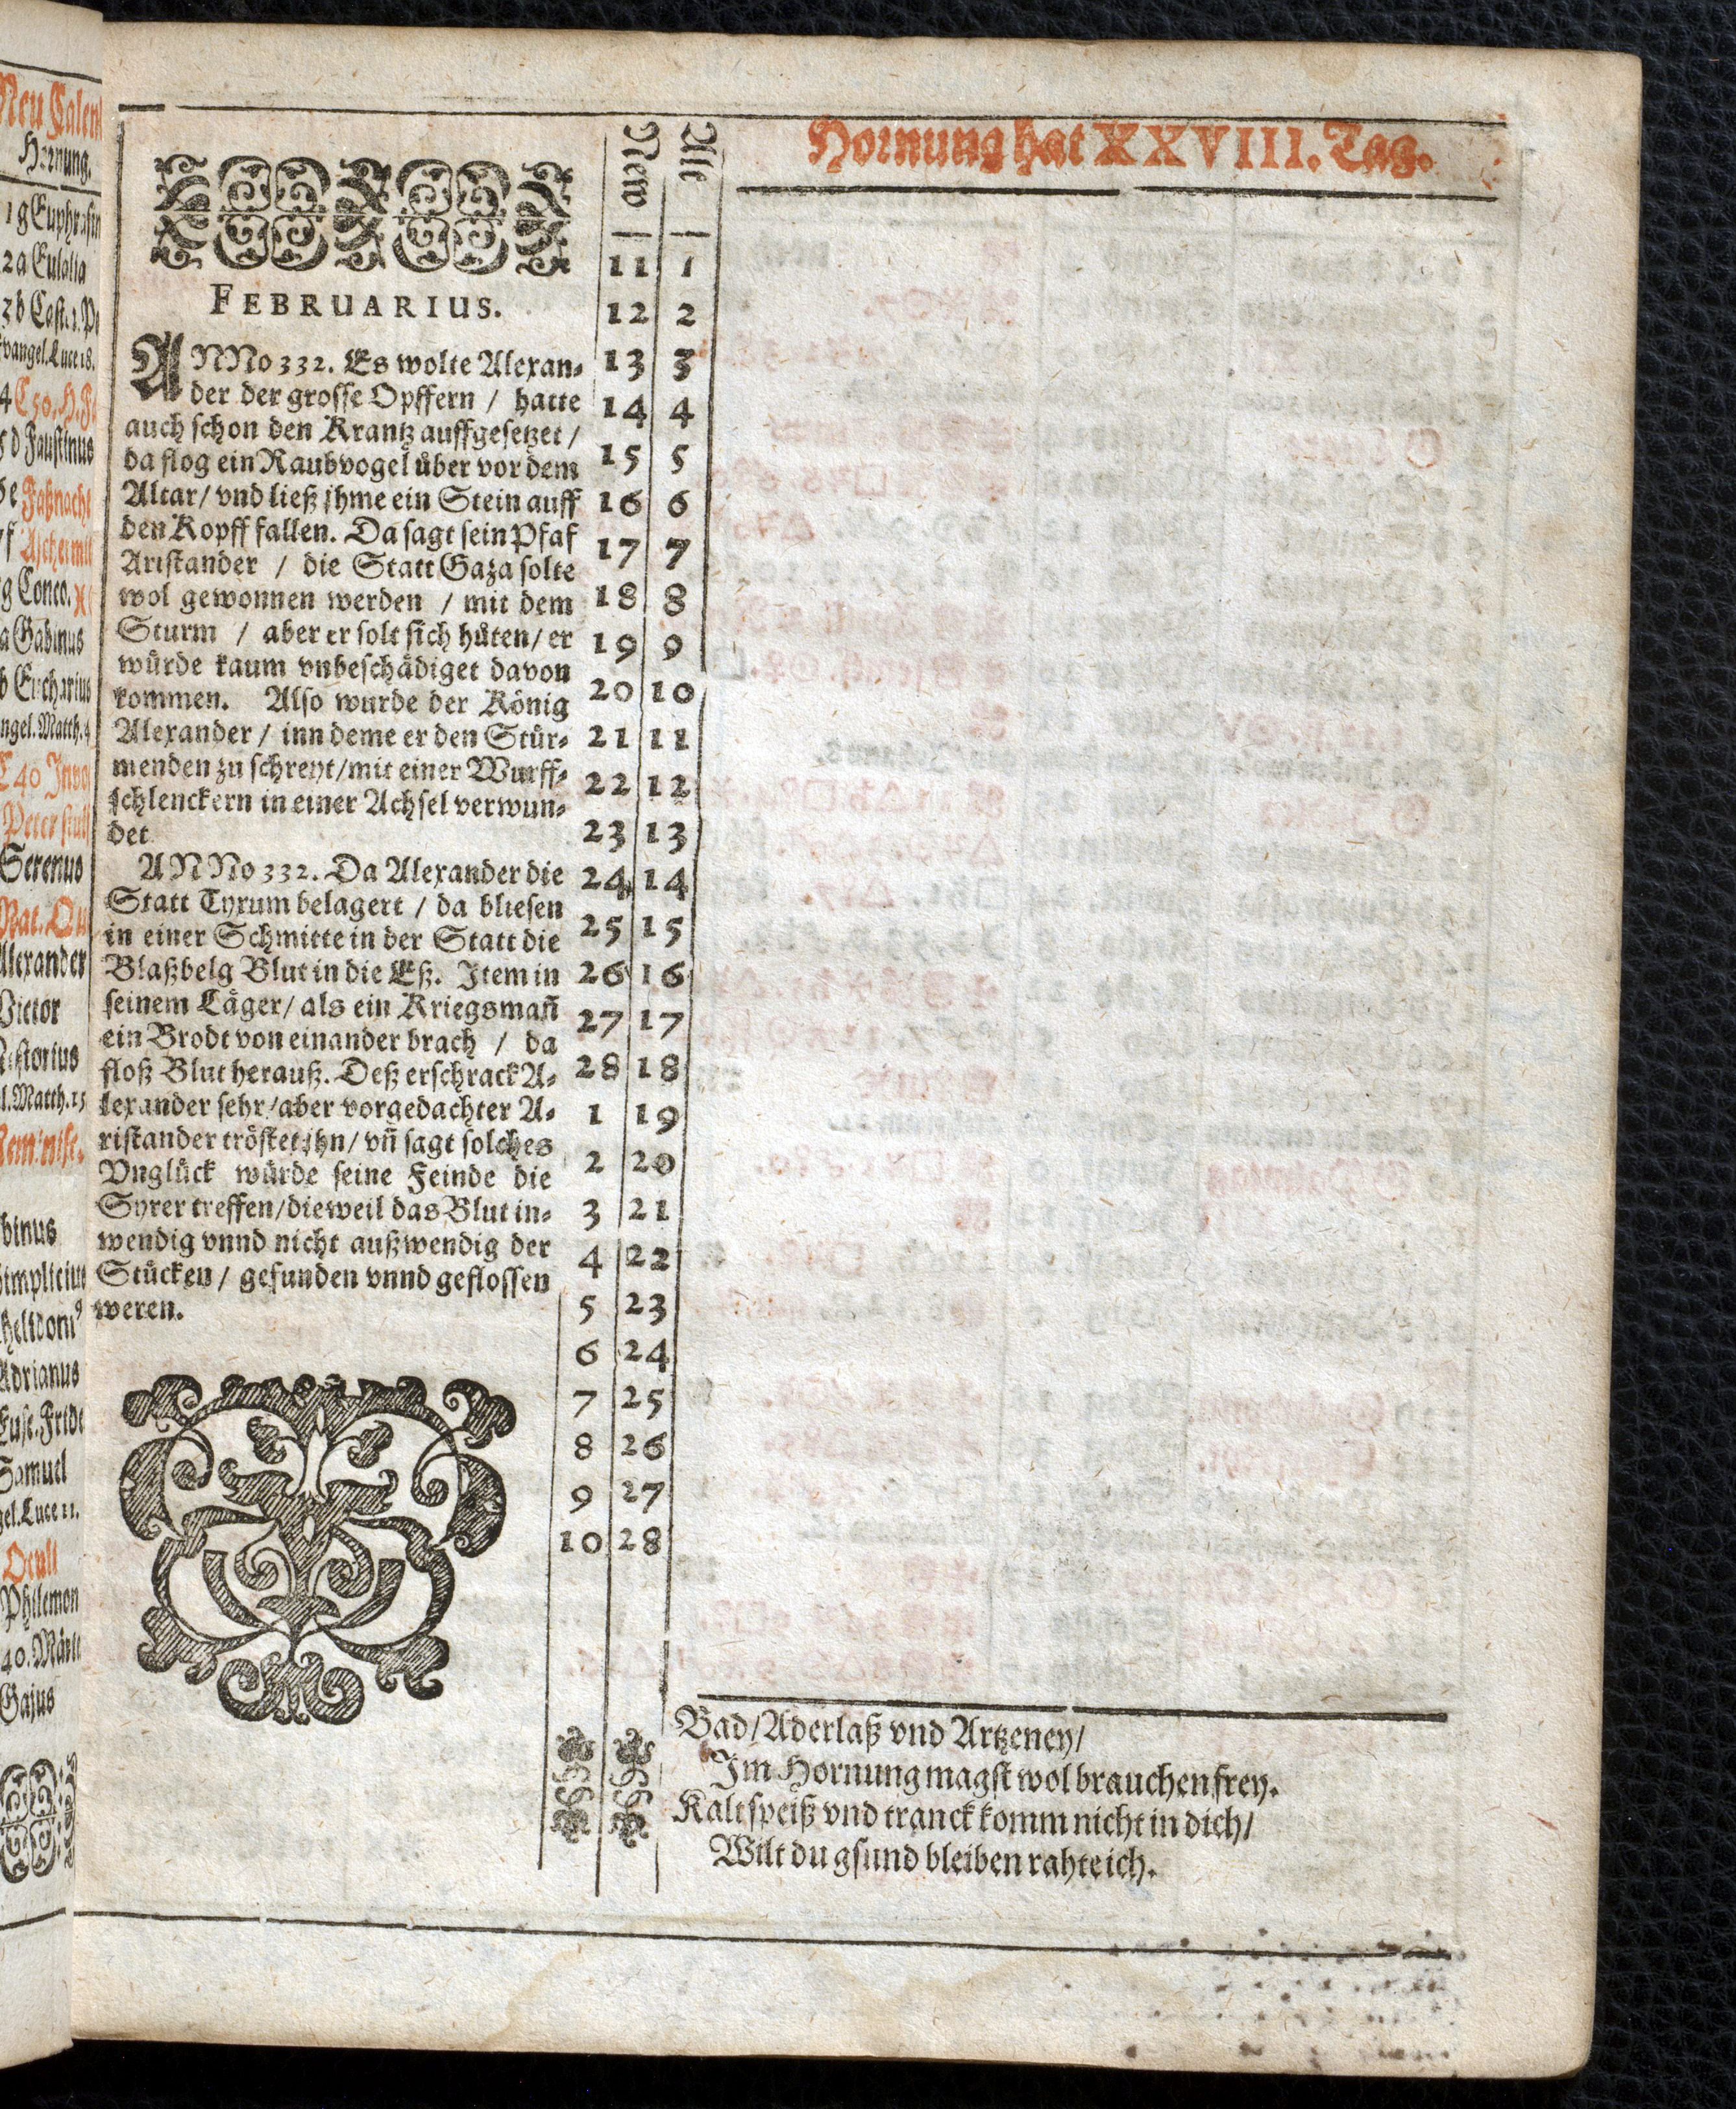 Neu Calen
Hornung.
1 g Euphrosin
2 a Eulalia
3 b Cast.
vangel. Luce 18.
d Faustinus
e Faßnacht
g Conco.
a Gabinus
b Eucharius
ngel. Matth. 4
Serenus
Alexander
Victor
l. Matth. 15
binus
Adrianus
Samuel
gel. Luce 11.
Oculi
Philemon
Gajus
FEBRUARIUS.
ANNo 332. Es wolte Alexan-
der der grosse Opffern / hatte
auch schon den Krantz auffgesetzet /
da flog ein Raubvogel über vor dem
Altar / vnd ließ jhme ein Stein auff
den Kopff fallen. Da sagt sein Pfaf
Aristander / die Statt Gaza solte
wol gewonnen werden / mit dem
Sturm / aber er solt sich hüten / er
würde kaum vnbeschädiget davon
kommen. Also wurde der König
Alexander / inn deme er den Stür-
menden zu schreyt / mit einer Wurff-
schlenckern in einer Achsel verwun-
det
ANNo 332. Da Alexander die
Statt Tyrum belagert / da bliesen
in einer Schmitte in der Statt die
Blaßbelg Blut in die Eß. Item in
seinem Läger / als ein Kriegsmañ
ein Brodt von einander brach / da
floß Blut herauß. Deß erschrack A-
lexander sehr / aber vorgedachter A-
ristander tröstet jhn / vñ sagt solches
Vnglück würde seine Feinde die
Syrer treffen / dieweil das Blut in-
wendig vnnd nicht außwendig der
Stücken / gefunden vnnd geflossen
weren.
New Alt
11 1
12 2
13 3
14 4
15 5
16 6
17 7
18 8
19 9
20 10
21 11
22 12
23 13
24 14
25 15
26 16
27 17
28 18
1 19
2 20
3 21
4 22
5 23
6 24
7 25
8 26
9 27
10 28
Hornung hat XXVIII. Tag.
Bad / Aderlaß vnd Artzeney /
Im Hornung magst wol brauchen frey.
Kalt speiß vnd tranck komm nicht in dich /
Wilt du gsund bleiben raht ich.